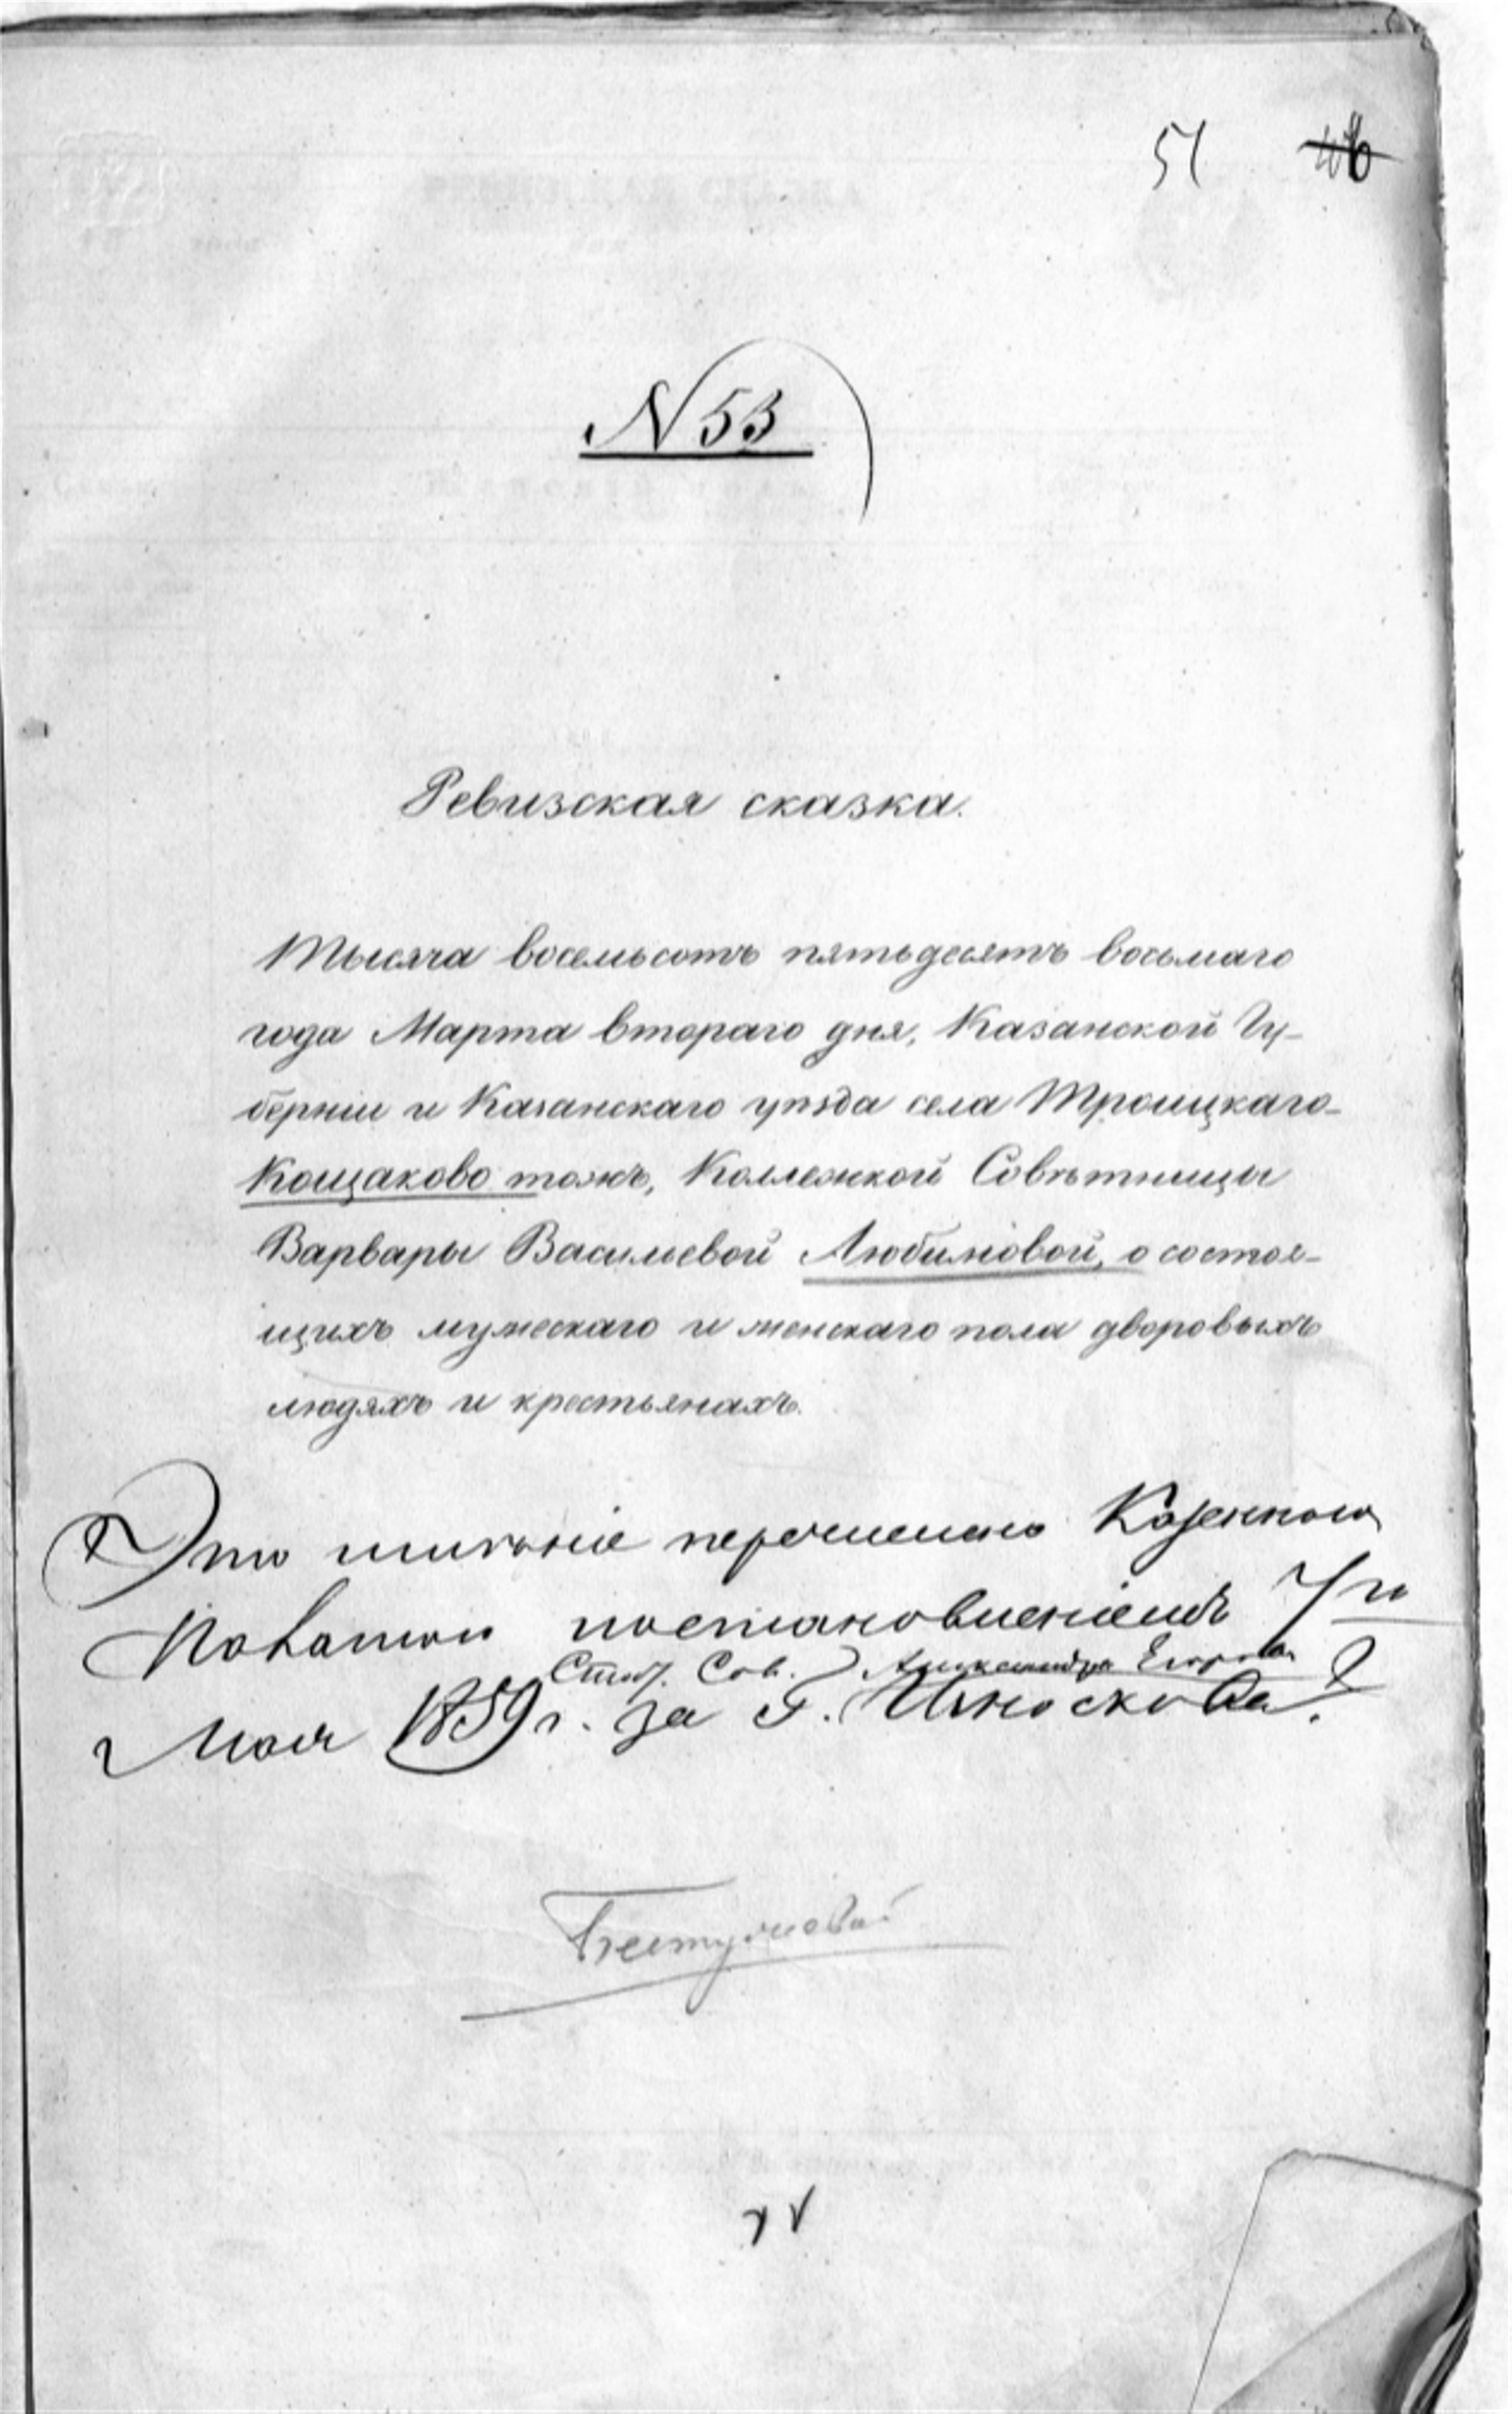 51 46
N 53
Ревизская сказка.
Тысяча восемьсотъ пятьдесятъ восьмаго
года Марта втораго дня, Казанской Гу-
берніи и Казанскаго уѣзда села Троицкаго-
Кощаково тожъ, Коллежской Совѣтницы
Варвары Васильевой Любимовой, о состоя-
щихъ мужескаго и женскаго пола дворовыхъ
людяхъ и крестьянахъ.
Это имѣніе перечислено Казенною
Палатою постановленіемъ 7го
Стат. Сов. Александра Егорова
Мая 1859 г. за г. Иноскова.